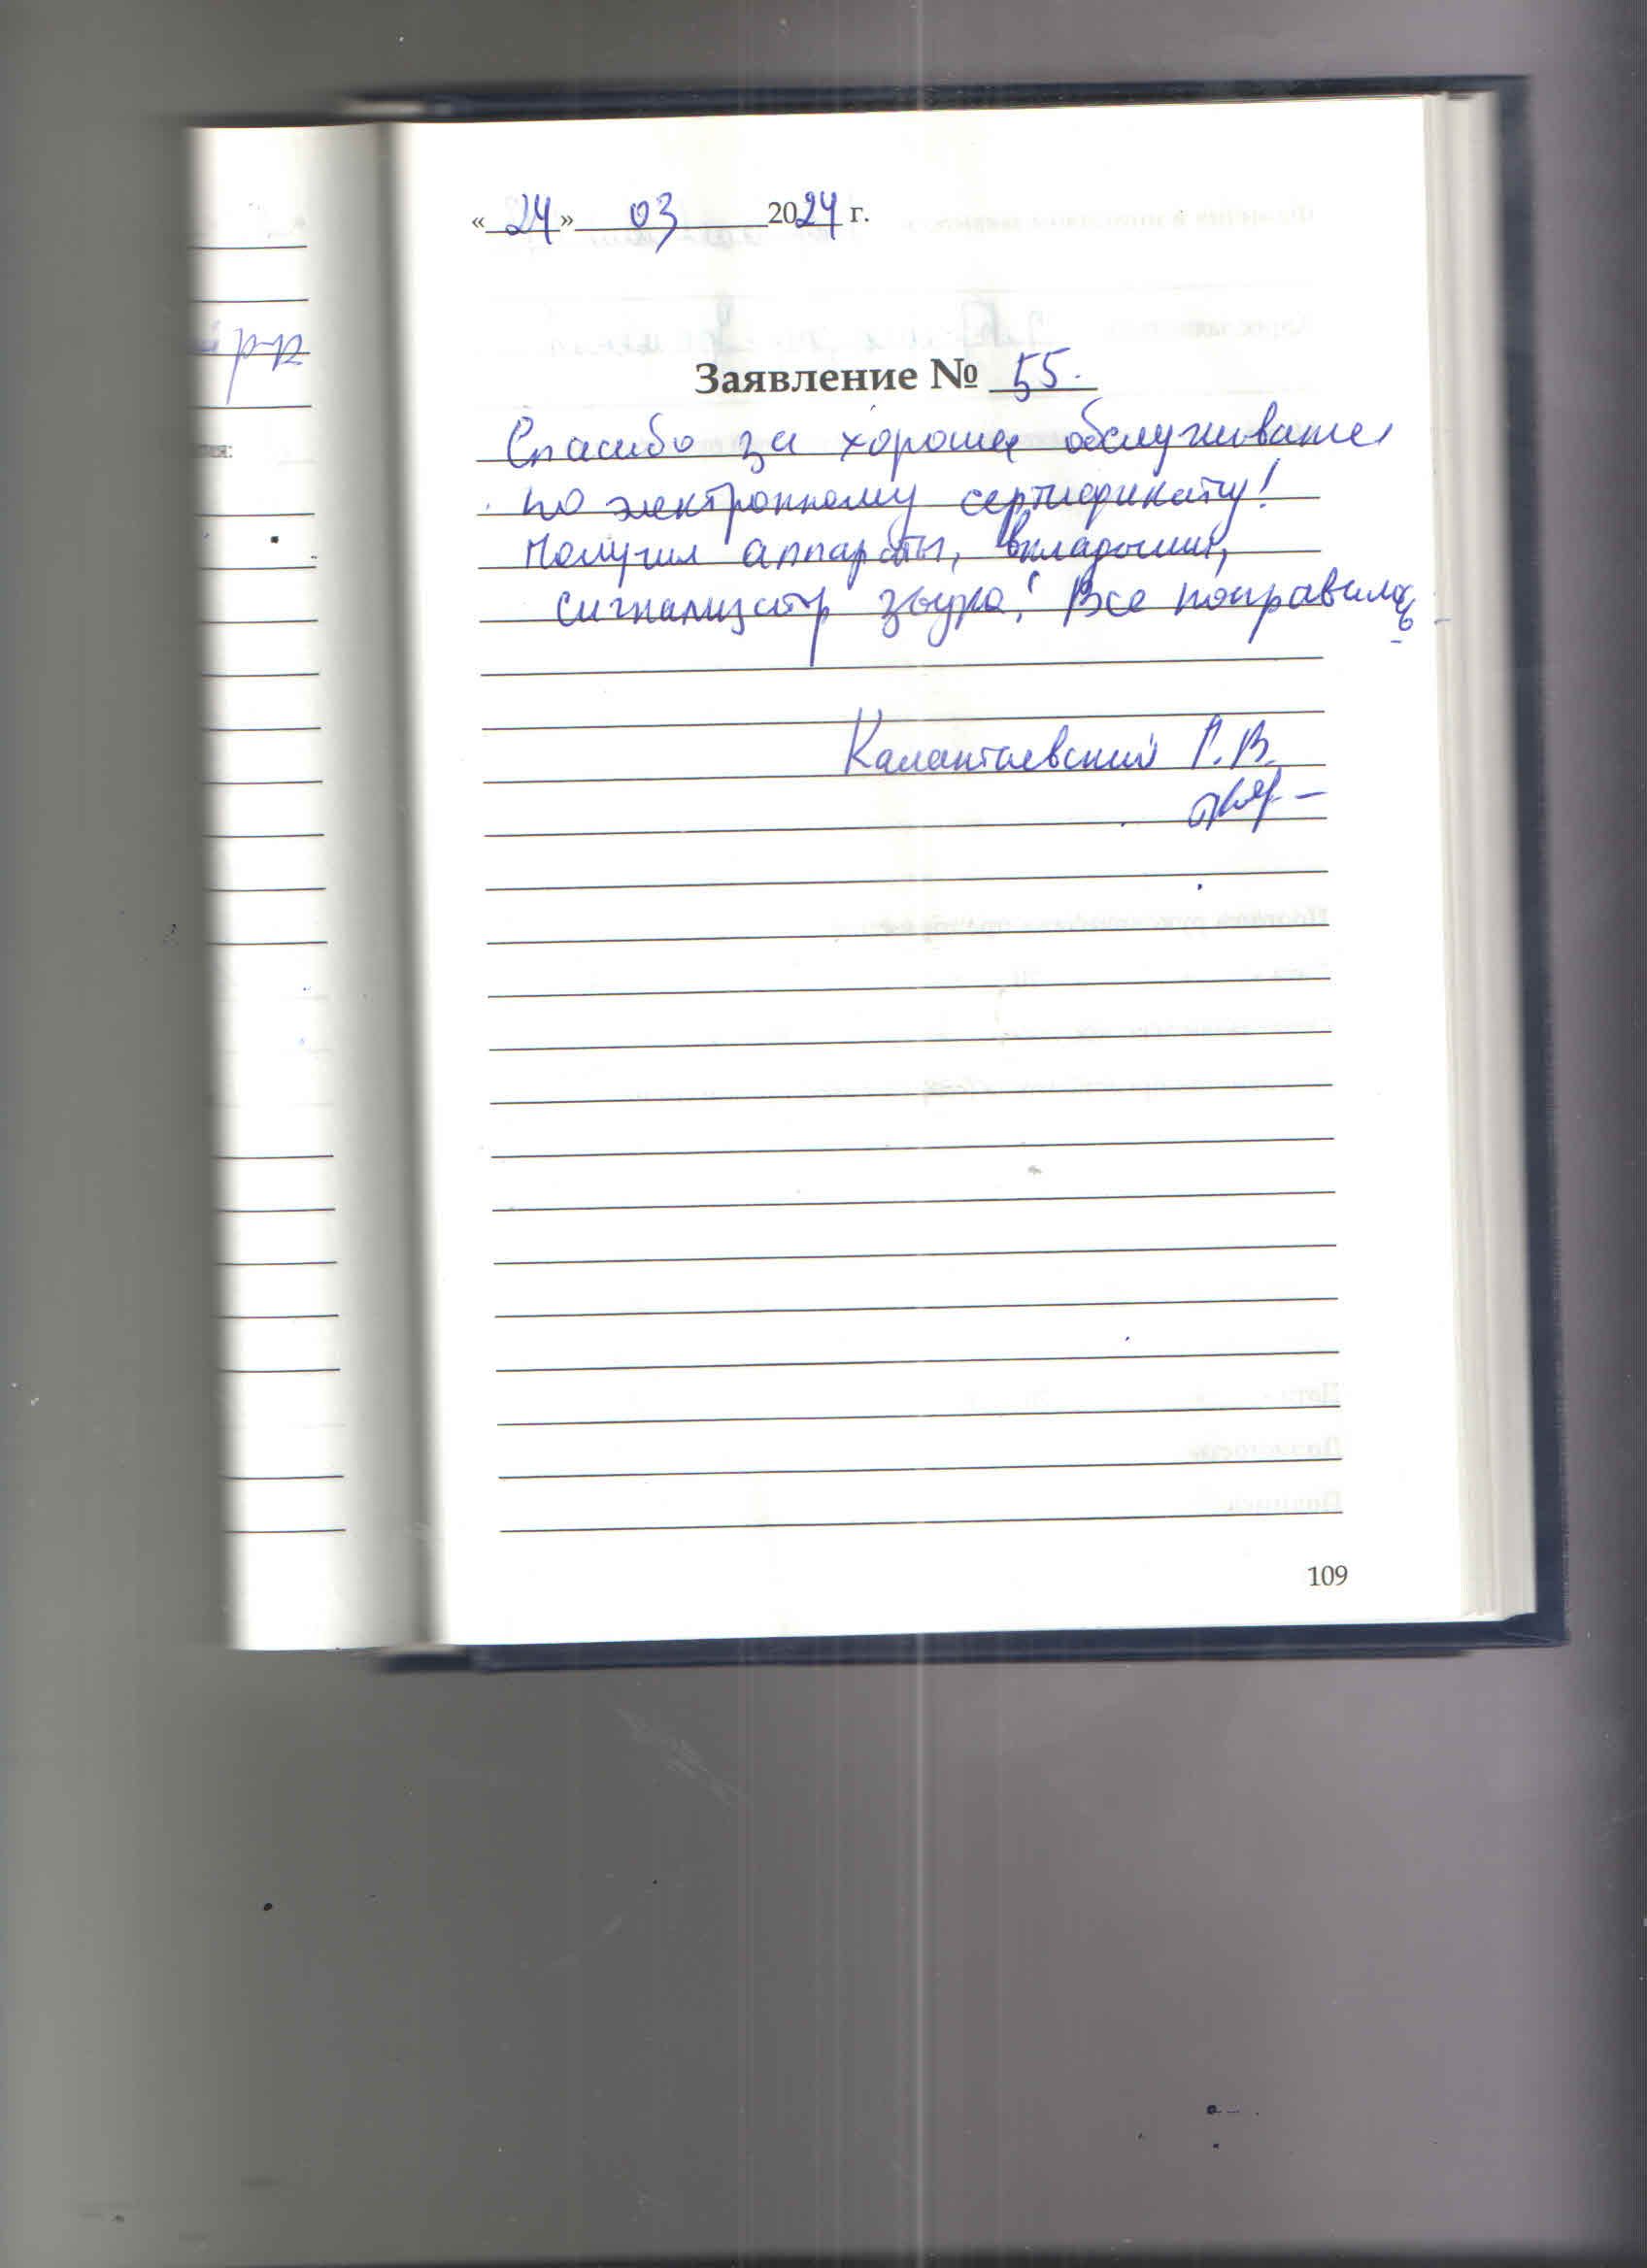 « 24 » 03 2024 г.
р-р
Заявление № 55.
Спасибо за хорошее обслуживание
по электронному сертификату!
Получил аппараты, вкладыши,
сигнализатр звука! Все понравилось
В.
109